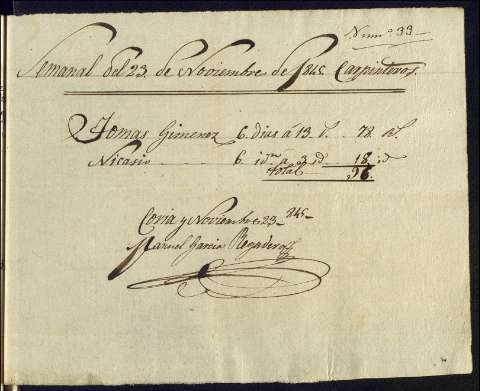 Num.º 33
Semanal del 23 de Noviembre de 1845 Carpinteros.
Tomas Gimenez 6 dias á 13 r. 78 rl.
Nicasio 6. idm a 3 id. 18. id
Total 96.
Coria y Noviembre 23 845
Manuel Garcia Regadera